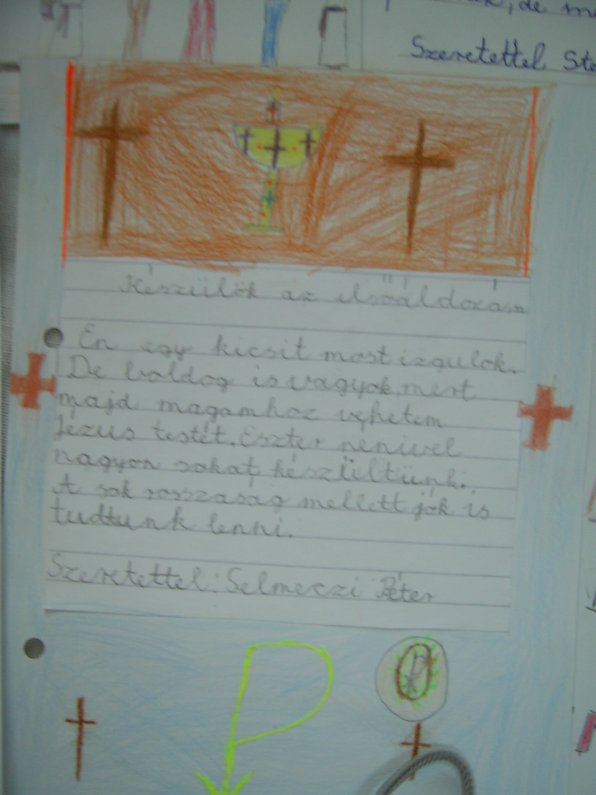 , de m
Szeretettel Ste
Készülök az elsőáldozásra
Én egy kicsit most izgulok.
De boldog is vagyok, mert
majd magamhoz vehetem
Jézus testét. Eszter nénivel
nagyon sokat készültünk.
A sok rosszaság mellett jók is
tudtunk lenni.
Szeretettel: Selmeczi Péter
P